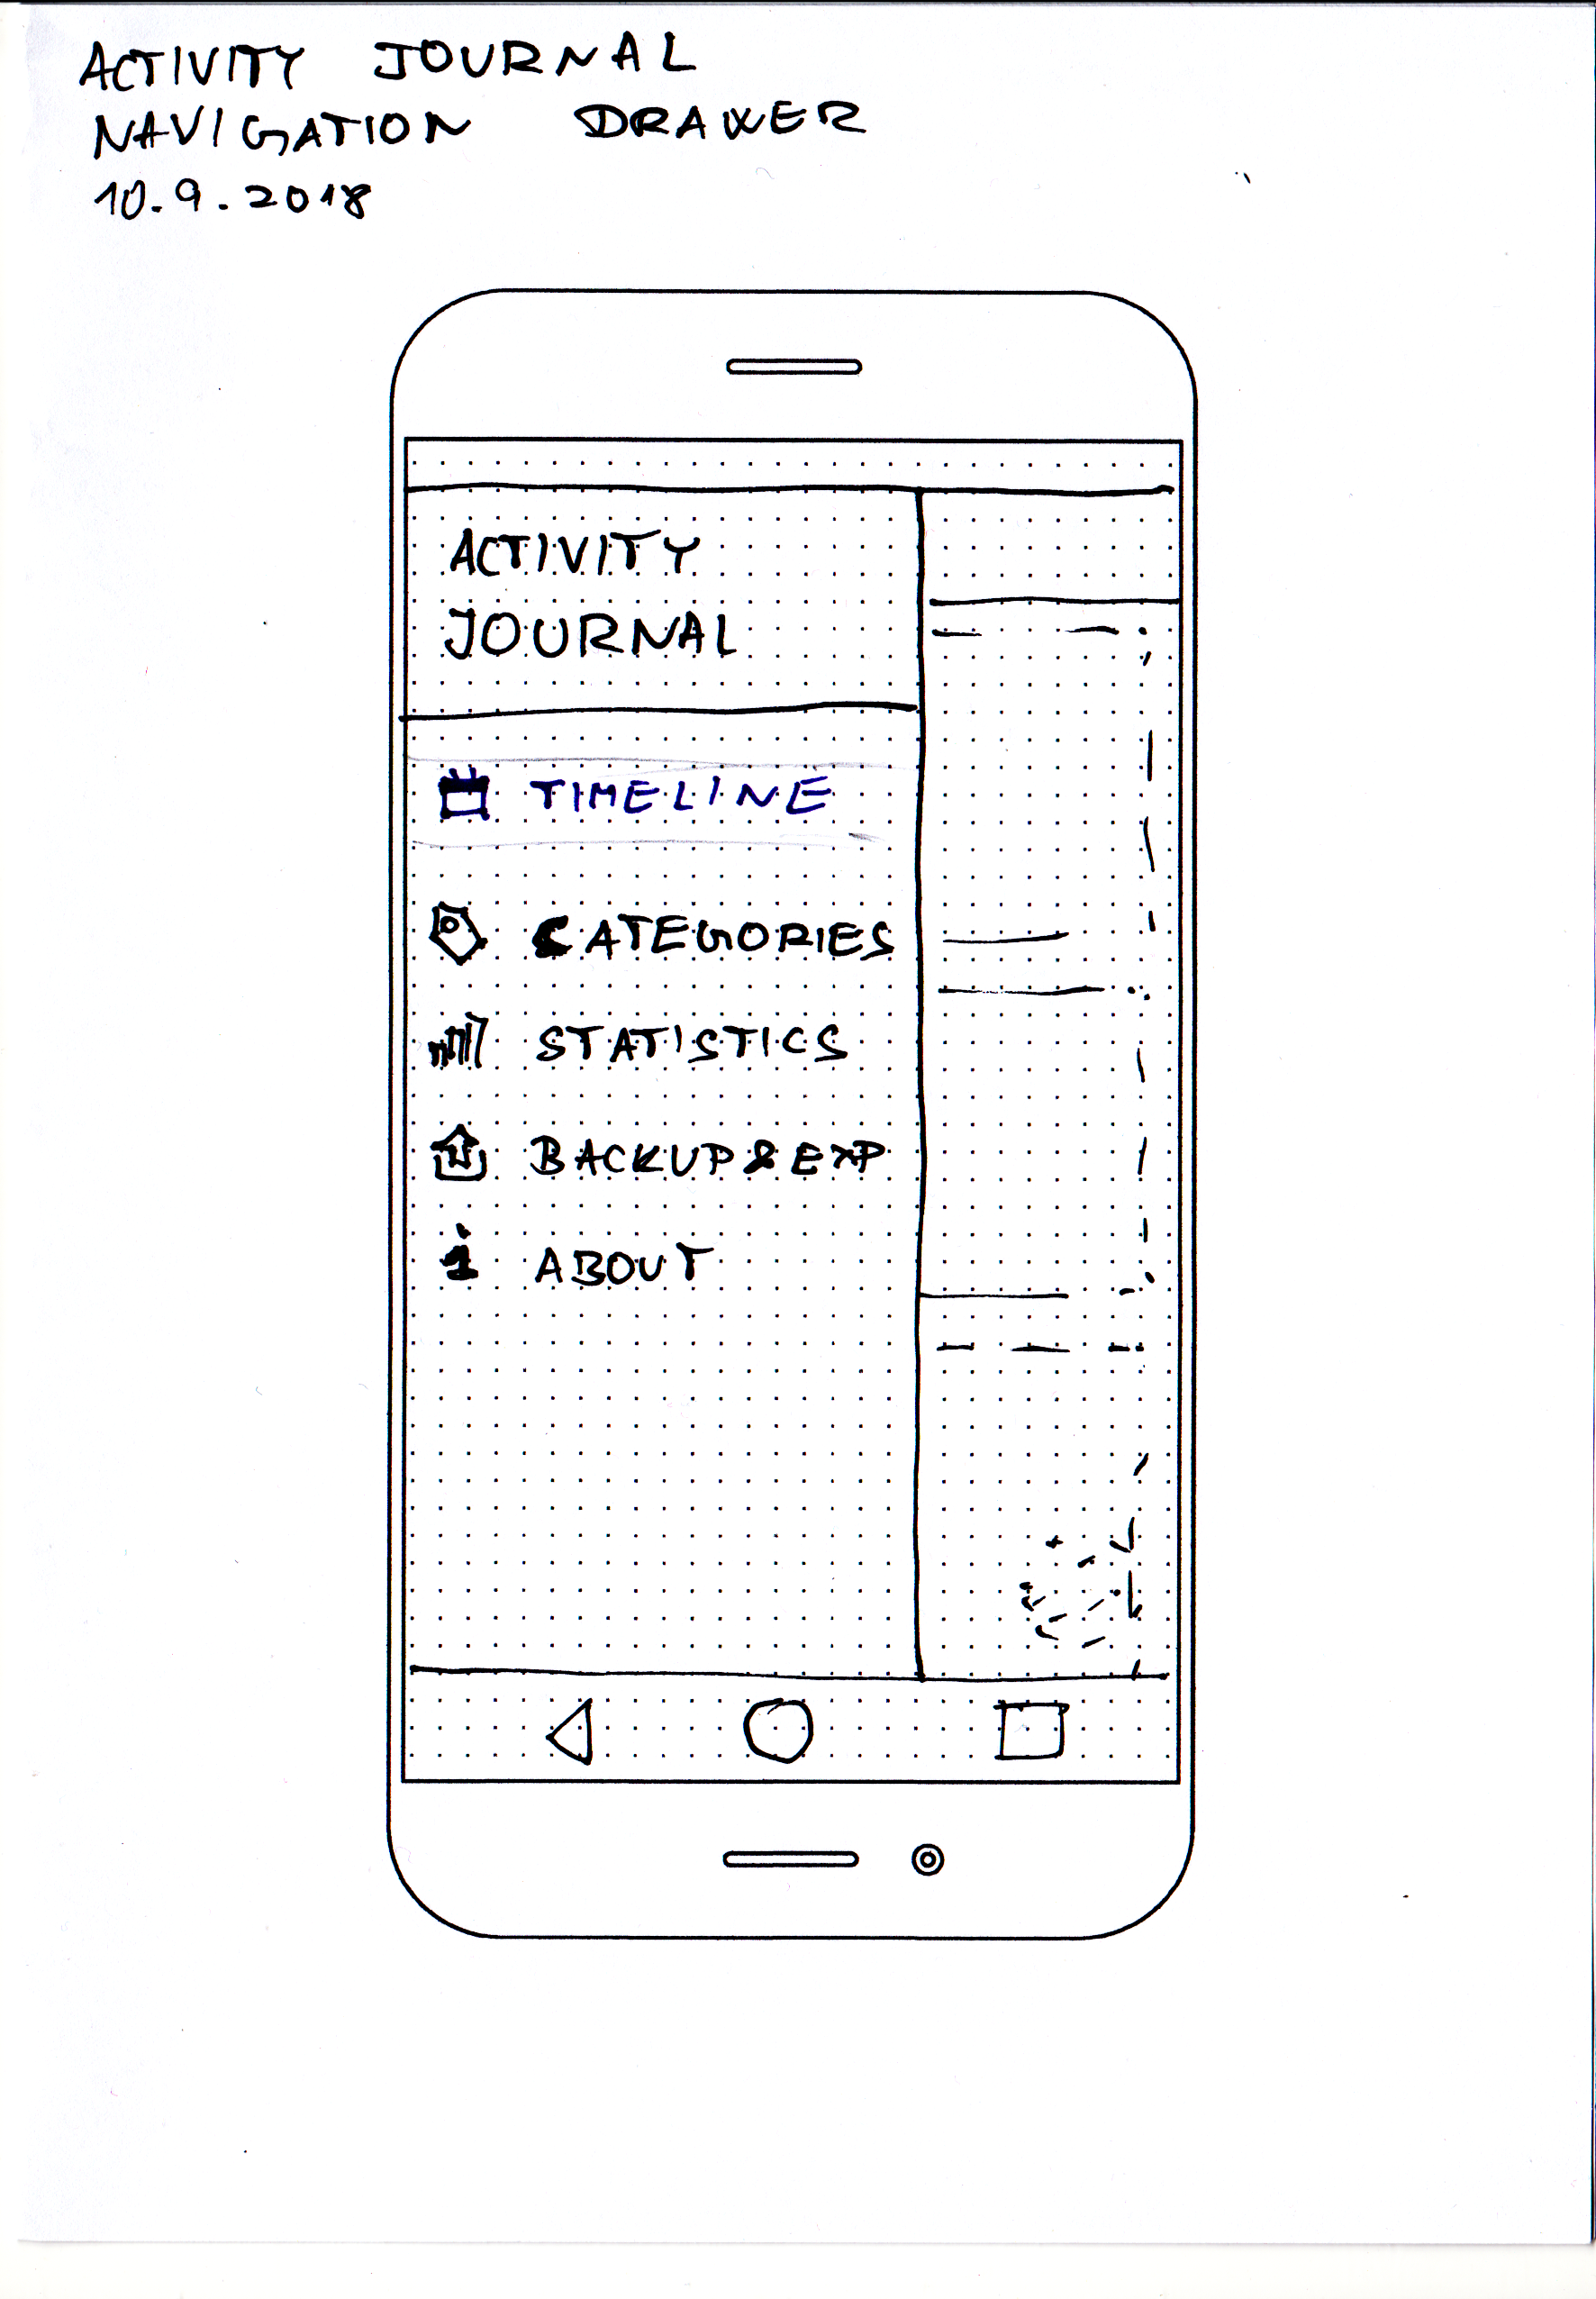 ACTIVITY JOURNAL
NAVIGATION DRAWER
10.9.2018
ACTIVITY
JOURNAL
TIMELINE
CATEGORIES
STATISTICS
BACKUP & EXP
ABOUT